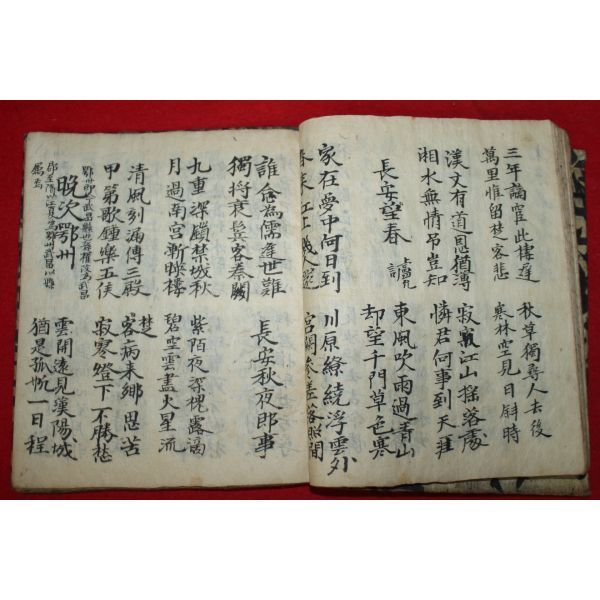 三年謫宦此棲遲
萬里惟留楚客悲
秋草獨尋人去後
寒林空見日斜時
漢文有道恩猶薄
湘水無情吊豈知
寂寂江山搖落處
憐君何事到天涯
長安望春
東風吹雨過青山
却望千門草色寒
家在夢中何日到
春來江上幾人還
川原繚繞浮雲外
宮闕參差落照間
誰念為儒逢世難
獨將衰鬢客秦關
長安秋夜郎事
九重深鎖禁城秋
月過南宮漸暎樓
紫陌夜深槐露滴
碧空雲盡火星流
清風刻漏傳三殿
甲第歌鍾樂五侯
楚客病來鄉思苦
寂寥燈下不勝愁
晚次鄂州
雲開遠見漢陽城
猶是孤帆一日程